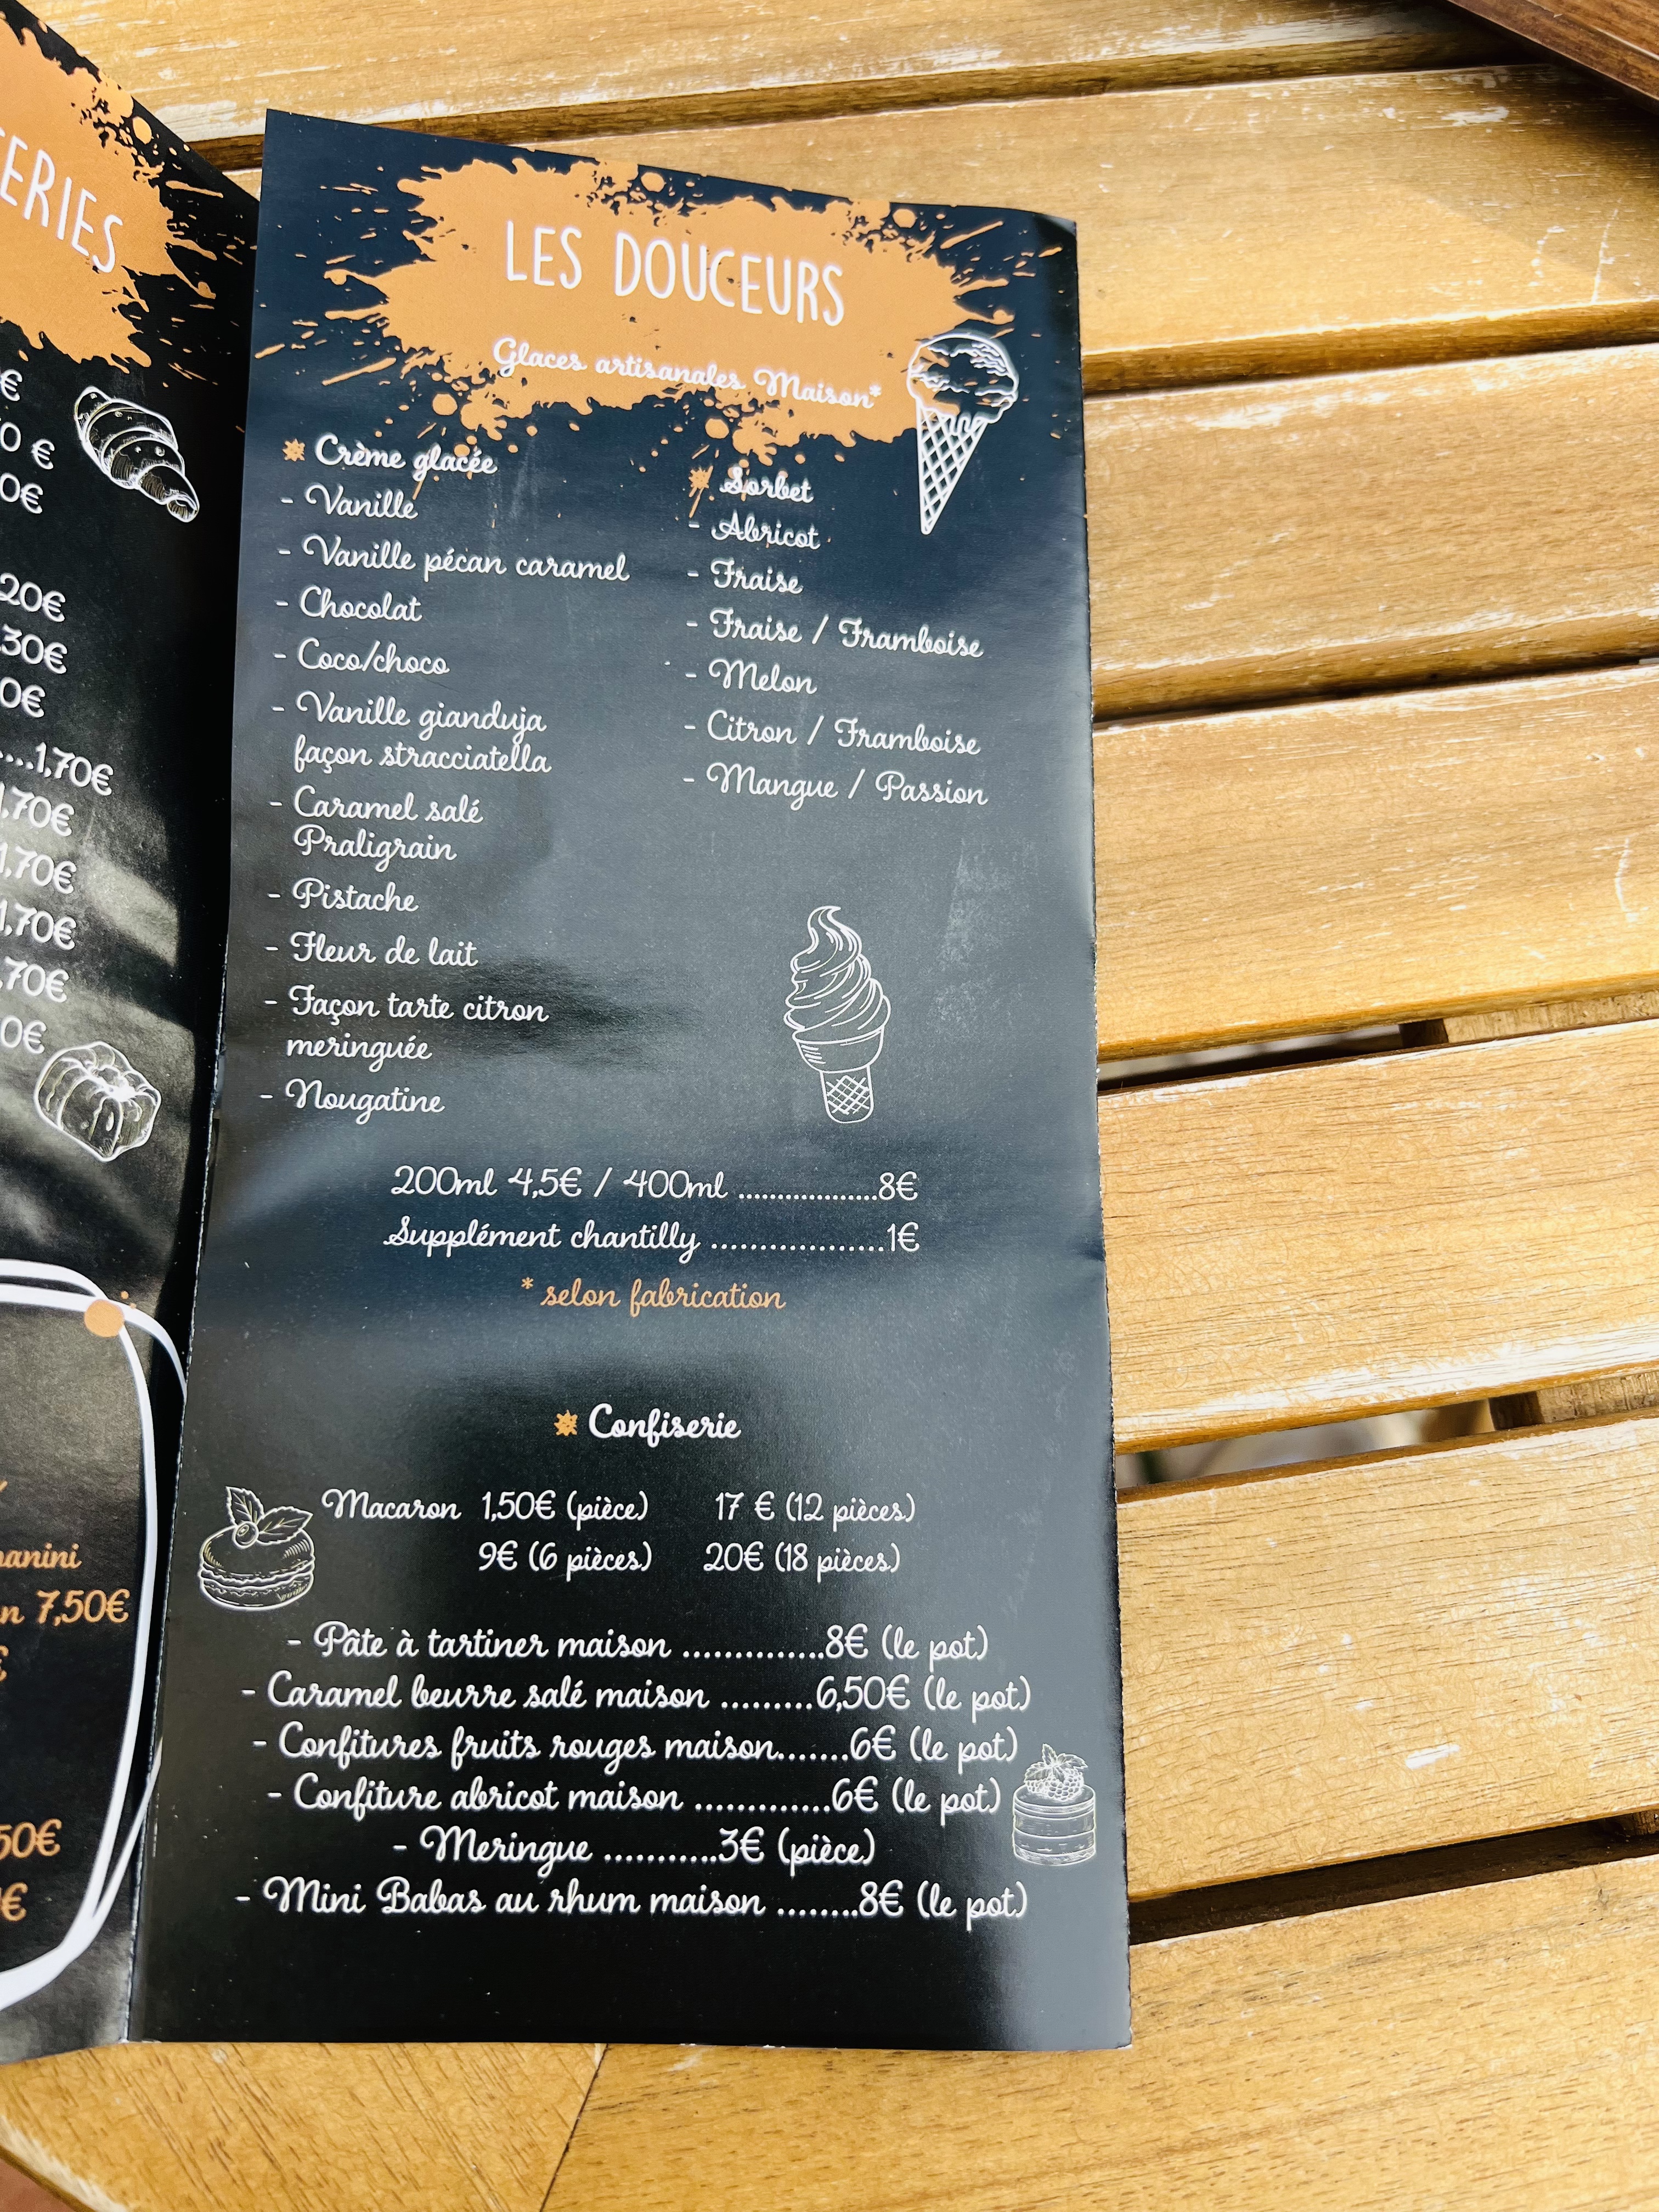 ERIES
€
0 €
0€
20€
30€
0€
....1,70€
1,70€
1,70€
1,70€
,70€
0€
anini
n 7,50€
€
50€
€
LES DOUCEURS
Glaces artisanales Maison*
Crème glacée
- Vanille
- Vanille pécan caramel
- Chocolat
- Coco/choco
- Vanille gianduja
façon stracciatella
- Caramel salé
Praligrain
- Pistache
- Fleur de lait
- Façon tarte citron
meringuée
- Nougatine
Sorbet
- Abricot
- Fraise
- Fraise / Framboise
- Melon
- Citron / Framboise
- Mangue / Passion
200ml 4,5€ / 400ml ..................8€
Supplément chantilly ..................1€
* selon fabrication
Confiserie
Macaron 1,50€ (pièce) 17 € (12 pièces)
9€ (6 pièces) 20€ (18 pièces)
- Pâte à tartiner maison ..............8€ (le pot)
- Caramel beurre salé maison .........6,50€ (le pot)
- Confitures fruits rouges maison.......6€ (le pot)
- Confiture abricot maison .............6€ (le pot)
- Meringue ...........3€ (pièce)
- Mini Babas au rhum maison ........8€ (le pot)